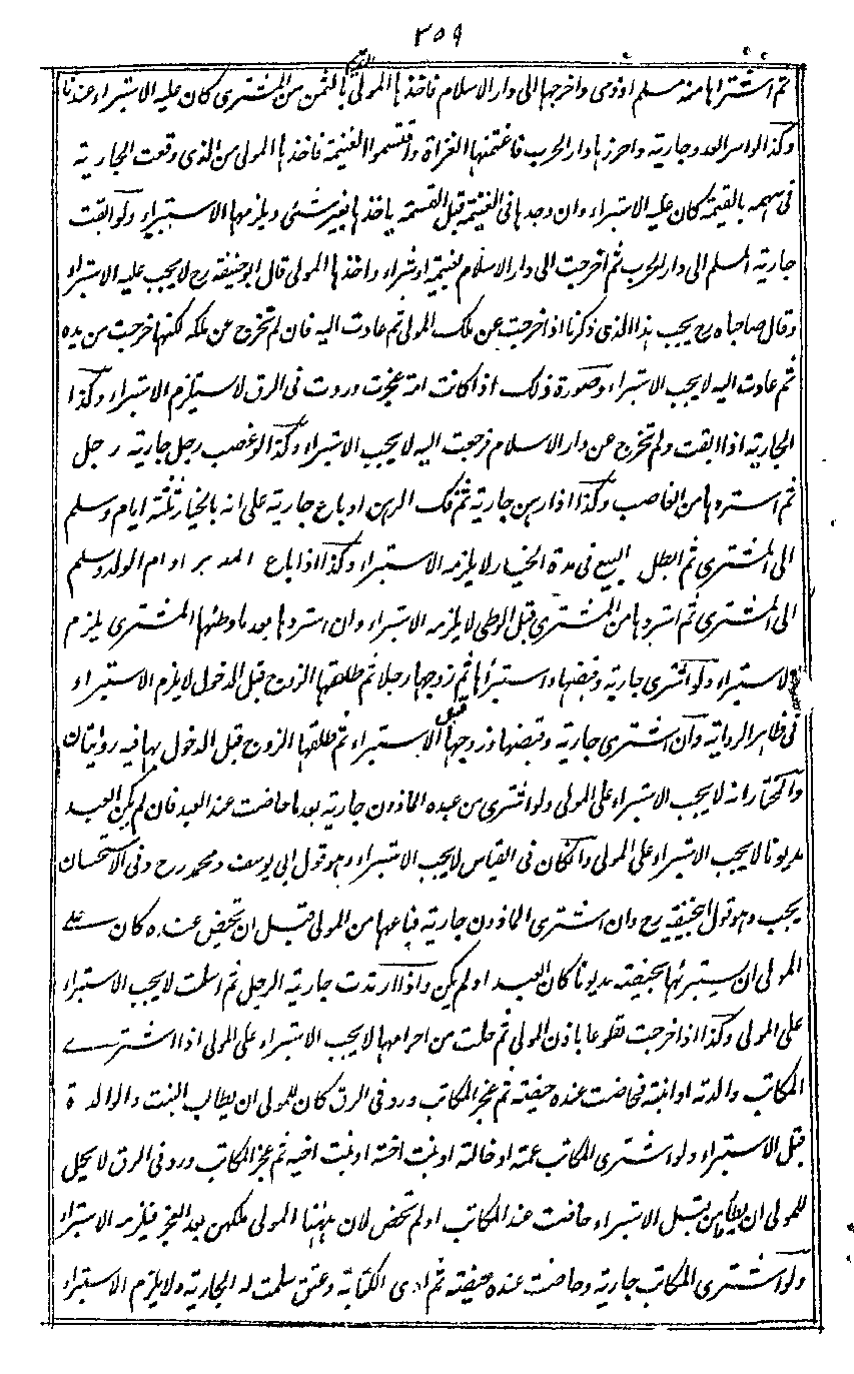 ٣٥٩
ثم اشتراها منه مسلم او ذمى واخرجها الى دار الاسلام فاخذها المولى القديم بالثمن من المشترى كان عليه الاستبراء عندنا
وكذا لو اسر العدو جارية واحرزها دار الحرب فاغتنمها الغزاة واقتسموا الغنيمة فاخذها المولى من الذى وقعت الجارية
فى سهمه بالقيمة كان عليه الاستبراء وان وجدها فى الغنيمة قبل القسمة ياخذها بغير شئى ويلزمها الاستبراء ولو ابقت
جارية المسلم الى دار الحرب ثم اخرجت الى دار الاسلام بغنيمة او شراء واخذها المولى قال ابو حنيفة رح لا يجب عليه الاستبراء
وقال صاحباه رح يجب هذا الذى ذكرنا اذا خرجت عن ملك المولى ثم عادت اليه فان لم تخرج عن ملكه لكنها خرجت من يده
ثم عادت اليه لا يجب الاستبراء وصورة ذلك اذا كانت امة عجزت وردت فى الرق لا يستلزم الاستبراء وكذا
الجارية اذا ابقت ولم تخرج عن دار الاسلام فرجعت اليه لا يجب الاستبراء وكذا لو غصب رجل جارية رجل
ثم استردها من الغاصب وكذا اذا رهن جارية ثم فك الرهن او باع جارية على انه بالخيار ثلثة ايام وسلم
الى المشترى ثم ابطل البيع فى مدة الخيار لا يلزمه الاستبراء وكذا اذا باع المدبر او ام الولد وسلم
الى المشترى ثم استردها من المشترى قبل الوطى لا يلزمه الاستبراء وان استردها بعد ما وطئها المشترى يلزم
الاستبراء ولو اشترى جارية وقبضها واستبرأها ثم زوجها رجلا ثم طلقها الزوج قبل الدخول لا يلزم الاستبراء
فى ظاهر الرواية وان اشترى جارية وقبضها وزوجها قبل الاستبراء ثم طلقها الزوج قبل الدخول بها فيه روايتان
والمختار انه لا يجب الاستبراء على المولى ولو اشترى من عبده الماذون جارية بعد ما حاضت عند العبد فان لم يكن العبد
مديونا لا يجب الاستبراء على المولى وان كان فى القياس لا يجب الاستبراء وهو قول ابى يوسف ومحمد رح وفى الاستحسان
يجب وهو قول ابيحنيفة رح وان اشترى الماذون جارية فباعها من المولى قبل ان تحيض عنده كان على
المولى ان يستبرئها بحيضة مديونا كان العبد او لم يكن واذا ارتدت جارية الرجل ثم اسلمت لا يجب الاستبراء
على المولى وكذا اذا خرجت تطوعا باذن المولى ثم حلت من احرامها لا يجب الاستبراء على المولى اذا اشترى
المكاتب والدته او ابنته فحاضت عنده حيضة ثم عجز المكاتب ورد فى الرق كان للمولى ان يطأ البنت والوالدة
قبل الاستبراء ولو اشترى المكاتب عمته او خالته او بنت اخته او بنت اخيه ثم عجز المكاتب ورد فى الرق لا يحل
للمولى ان يطأهن قبل الاستبراء حاضت عند المكاتب او لم تحض لان ههنا المولى ملكهن بعد العجز فيلزمه الاستبراء
ولو اشترى المكاتب جارية وحاضت عنده حيضة ثم ادى الكتابة وعتق سلمت له الجارية ولا يلزم الاستبراء